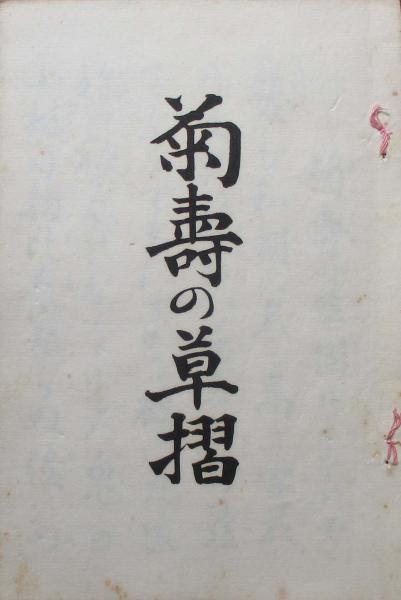 菊壽の草摺